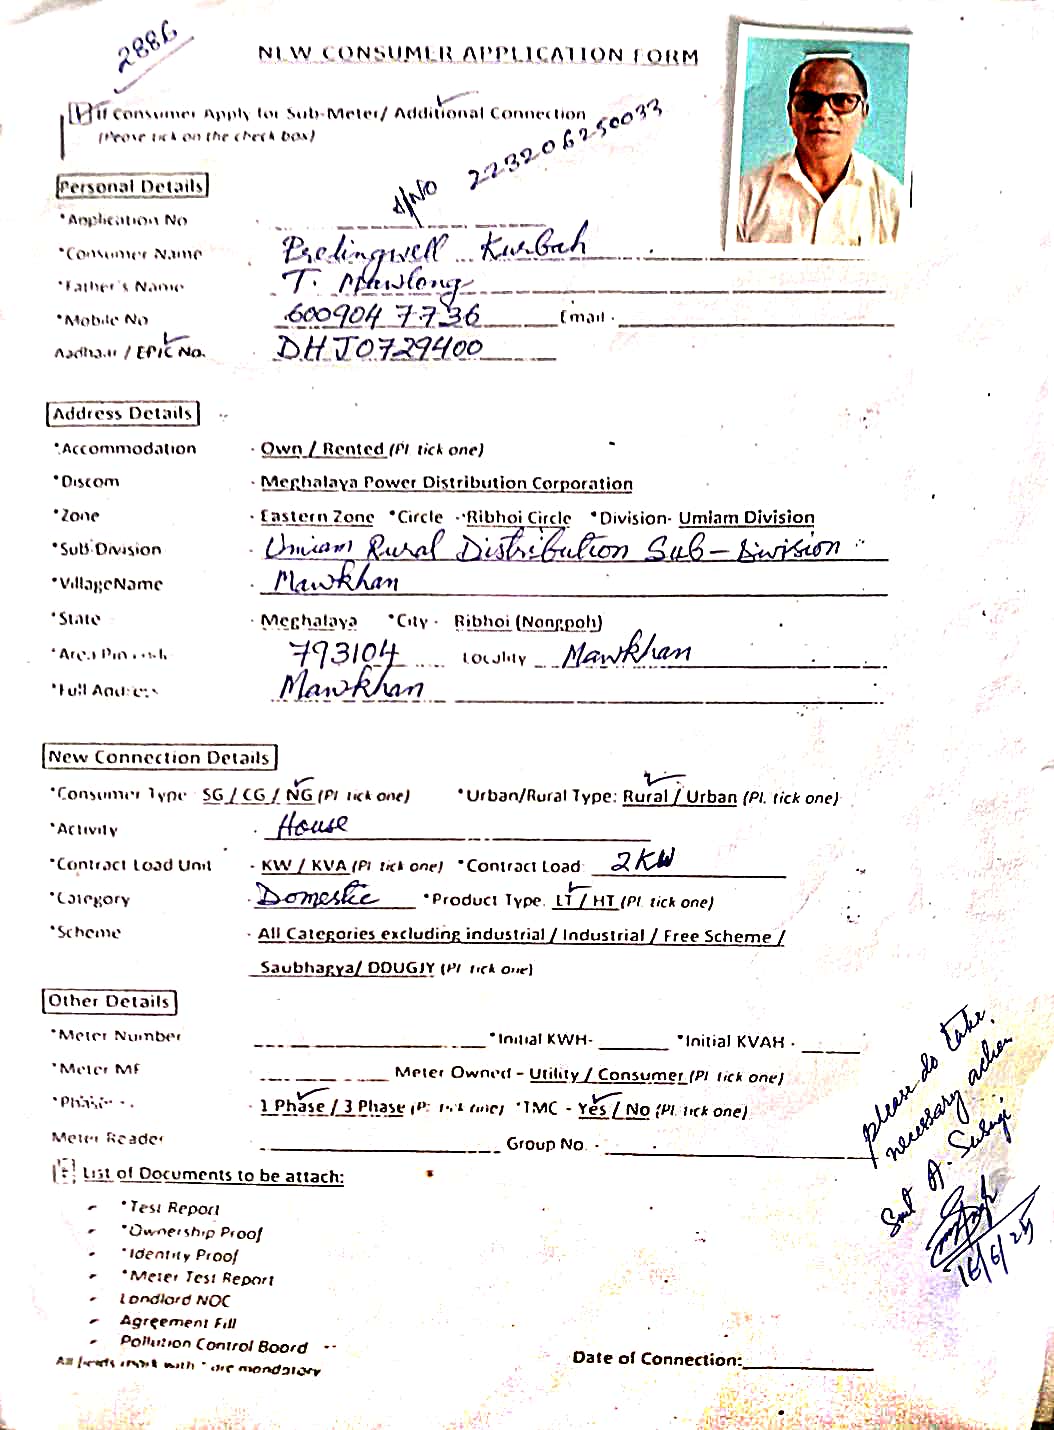 2886
NEW CONSUMER APPLICATION FORM
If Consumer Apply for Sub-Meter/ Additional Connection
(Please tick on the check box)
A/NO 223206250033
Personal Details
*Application No
*Consumer Name Predingwell Kurbah
*Father's Name T. Mawlong
*Mobile No 6009047736 Email -
Aadhaar / EPIC No. DHJ0729400
Address Details
*Accommodation - Own / Rented (Pl tick one)
*Discom - Meghalaya Power Distribution Corporation
*Zone - Eastern Zone *Circle - Ribhoi Circle *Division- Umiam Division
*Sub-Division - Umiam Rural Distribution Sub-Division
*VillageName - Mawkhan
*State - Meghalaya *City - Ribhoi (Nongpoh)
*Area Pin code 793104 Locality Mawkhan
*Full Address Mawkhan
New Connection Details
*Consumer Type SG / CG / NG (Pl tick one) *Urban/Rural Type: Rural / Urban (Pl. tick one)
*Activity - House
*Contract Load Unit - KW / KVA (Pl tick one) *Contract Load 2KW
*Category - Domestic *Product Type. LT / HT (Pl. tick one)
*Scheme - All Categories excluding industrial / Industrial / Free Scheme /
Saubhagya/ DDUGJY (Pl tick one)
Other Details
*Meter Number *Initial KWH- *Initial KVAH -
*Meter MF Meter Owned - Utility / Consumer (Pl tick one)
*Phase - 1 Phase / 3 Phase (Pl tick one) *TMC - Yes / No (Pl. tick one)
Meter Reader Group No. -
List of Documents to be attach:
- *Test Report
- *Ownership Proof
- *Identity Proof
- *Meter Test Report
- Landlord NOC
- Agreement Fill
- Pollution Control Board
All fields mark with * are mandatory
Date of Connection:
please do take
necessary action
Smt A. Susngi
16/6/25